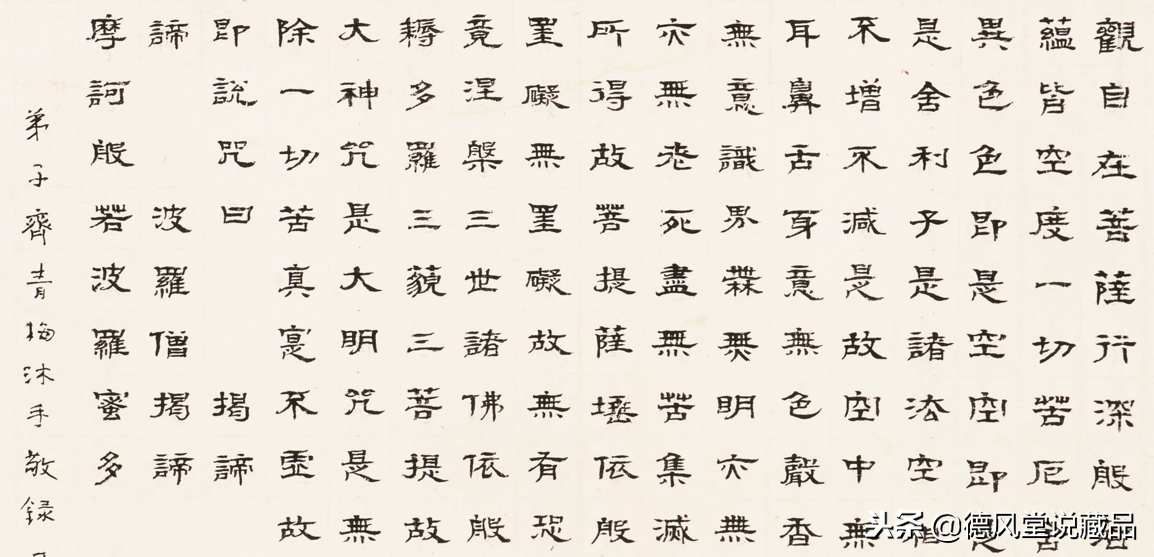 觀自在菩薩行深般若
蘊皆空度一切苦厄
異色色即是空空即是
是舍利子是諸法空相
不增不減是故空中無
耳鼻舌身意無色聲香
無意識界無無明亦無
亦無老死盡無苦集滅
所得故菩提薩埵依般
罣礙無罣礙故無有恐
竟涅槃三世諸佛依般
耨多羅三藐三菩提故
大神咒是大明咒是無
除一切苦真寔不虛故
即說咒曰 揭諦
諦 波羅僧揭諦
摩訶般若波羅蜜多
弟子齊青梅沐手敬録
头条 @德风堂说藏品